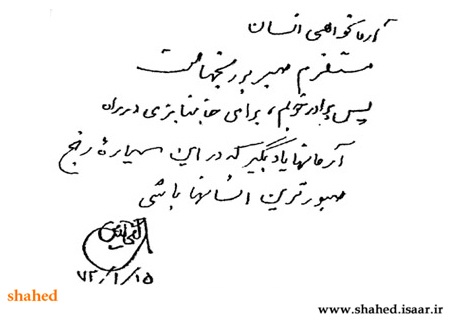 آرمانخواهی انسان
مستلزم صبر بر رنجهاست
پس برادر خوبم، برای جانبازی در راه
آرمانها یاد بگیر که در این سیارهٔ رنج
صبورترین انسانها باشی
۷۲/۱/۱۵
shahed
www.shahed.isaar.ir